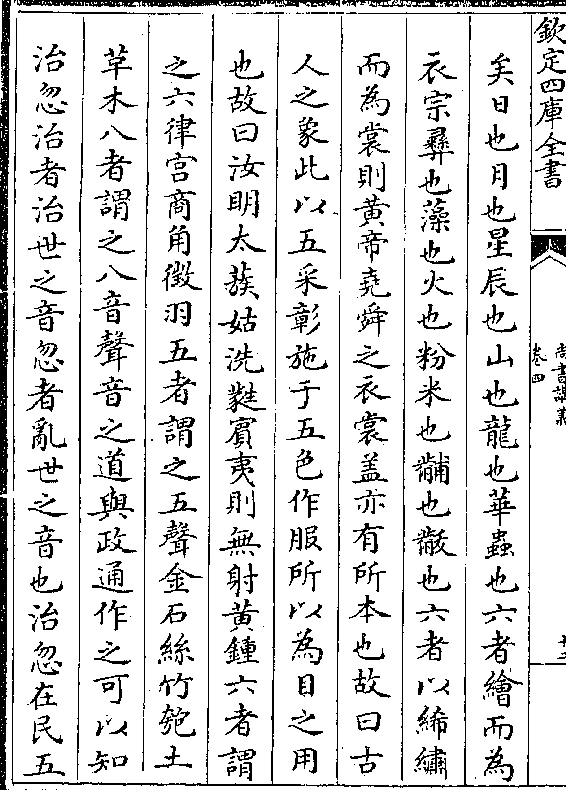 欽定四庫全書
尚書講義
卷四
矣日也月也星辰也山也龍也華蟲也六者繪而為
衣宗彞也藻也火也粉米也黼也黻也六者以絺繡
而為裳則黃帝堯舜之衣裳盖亦有所本也故曰古
人之象此以五采彰施于五色作服所以為目之用
也故曰汝明太蔟姑洗蕤賓夷則無射黃鍾六者謂
之六律宫商角徴羽五者謂之五聲金石絲竹匏土
草木八者謂之八音聲音之道與政通作之可以知
治忽治者治世之音忽者亂世之音也治忽在民五